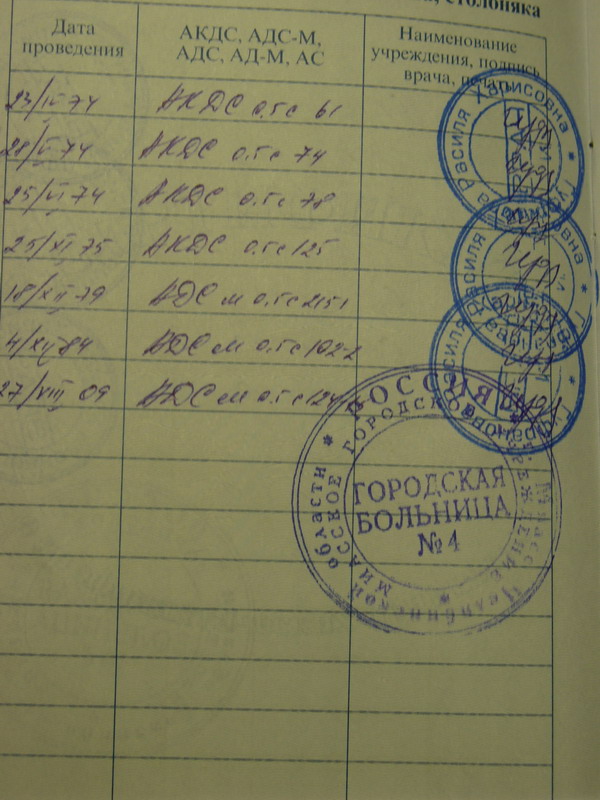 столбняка
Дата
проведения
АКДС, АДС-М,
АДС, АД-М, АС
Наименование
учреждения, подпись
врача, печать
23/IV 74 АКДС 0.5 с 61
28/V 74 АКДС 0.5 с 74
25/VI 74 АКДС 0.5 с 78
25/XI 75 АКДС 0.5 с 125
18/XII 79 АДС м 0.5 с 215-1
4/XII 84 АДС м 0.5 с 102-2
27/VIII 09 АДС м 0.5 с
Расиля Харисовна
Расиля
РОССИЯ
ГОРОДСКАЯ
БОЛЬНИЦА
№4
МИАССКОЕ ГОРОДСКОЕ
Миасс Челябинской области